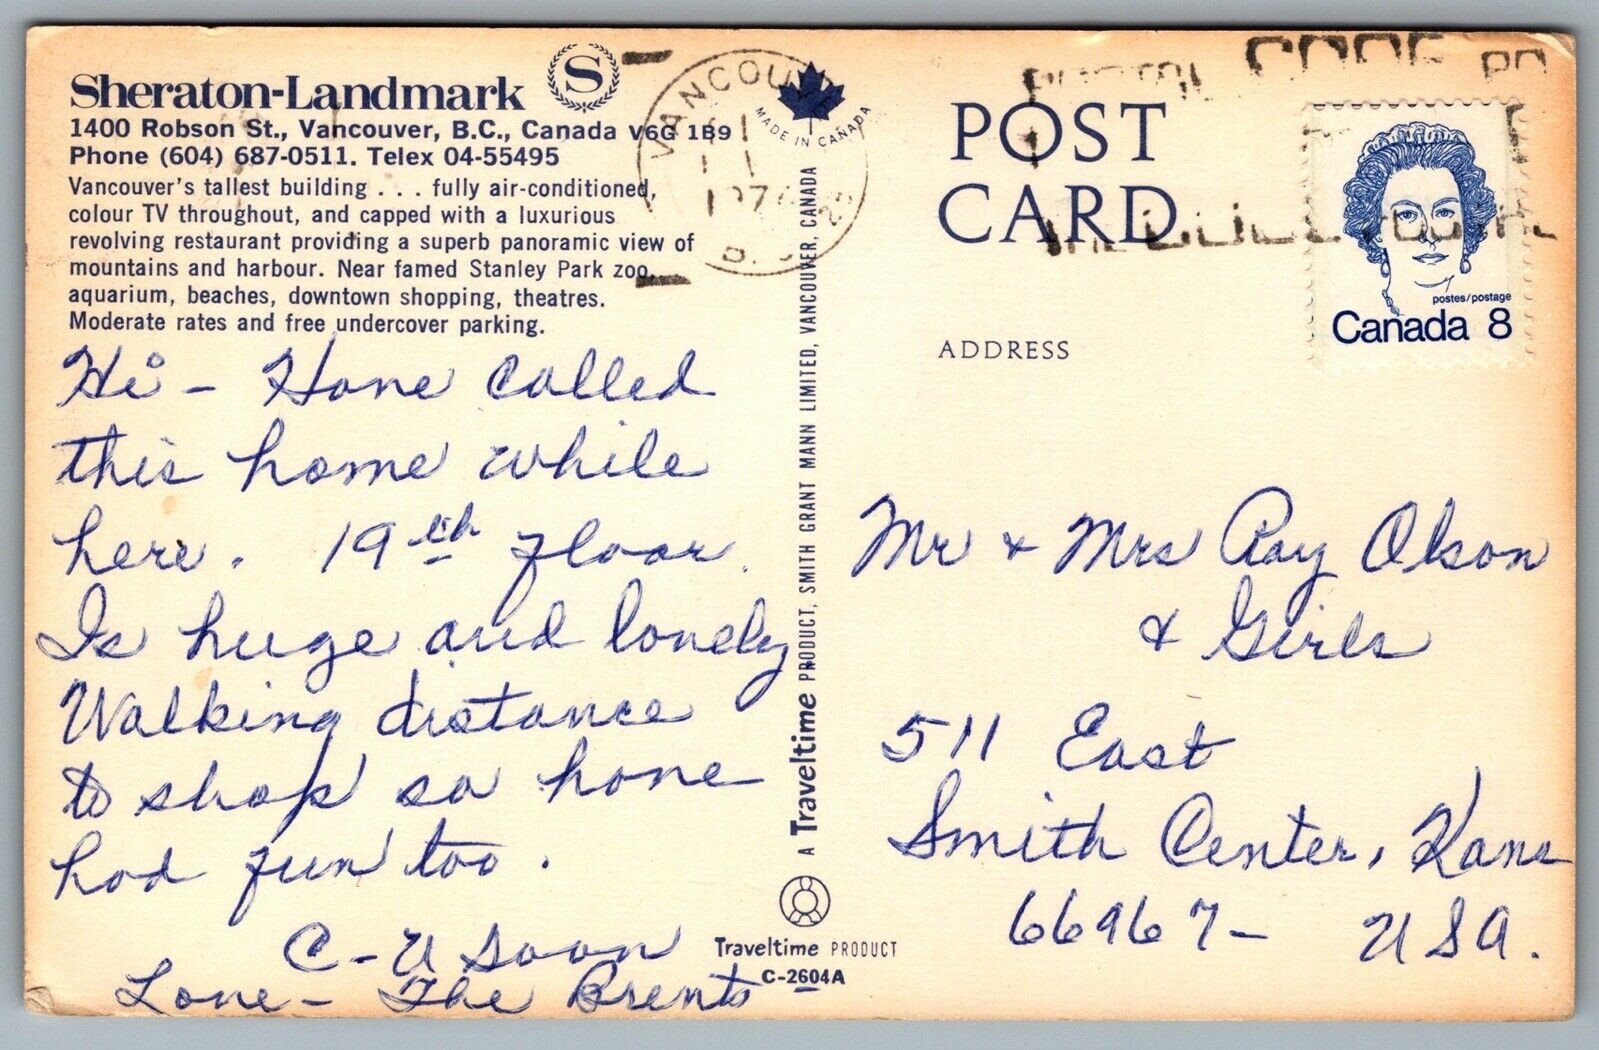 Sheraton-Landmark S
1400 Robson St., Vancouver, B.C., Canada V6G 1B9
Phone (604) 687-0511. Telex 04-55495
Vancouver's tallest building . . . fully air-conditioned,
colour TV throughout, and capped with a luxurious
revolving restaurant providing a superb panoramic view of
mountains and harbour. Near famed Stanley Park zoo,
aquarium, beaches, downtown shopping, theatres.
Moderate rates and free undercover parking.
Hi - Have called
this home while
here. 19th floor.
Is huge and lonely
Walking distance
to shop so have
had fun too.
C-U Soon
Love - The Brents
VANCOUVER
MADE IN CANADA
A Traveltime PRODUCT, SMITH GRANT MANN LIMITED, VANCOUVER, CANADA
Traveltime PRODUCT
C-2604A
POST
CARD
ADDRESS
CODE
postes/postage
Canada 8
Mr & Mrs Ray Olson
& Girls
511 East
Smith Center, Kans
66967- USA.